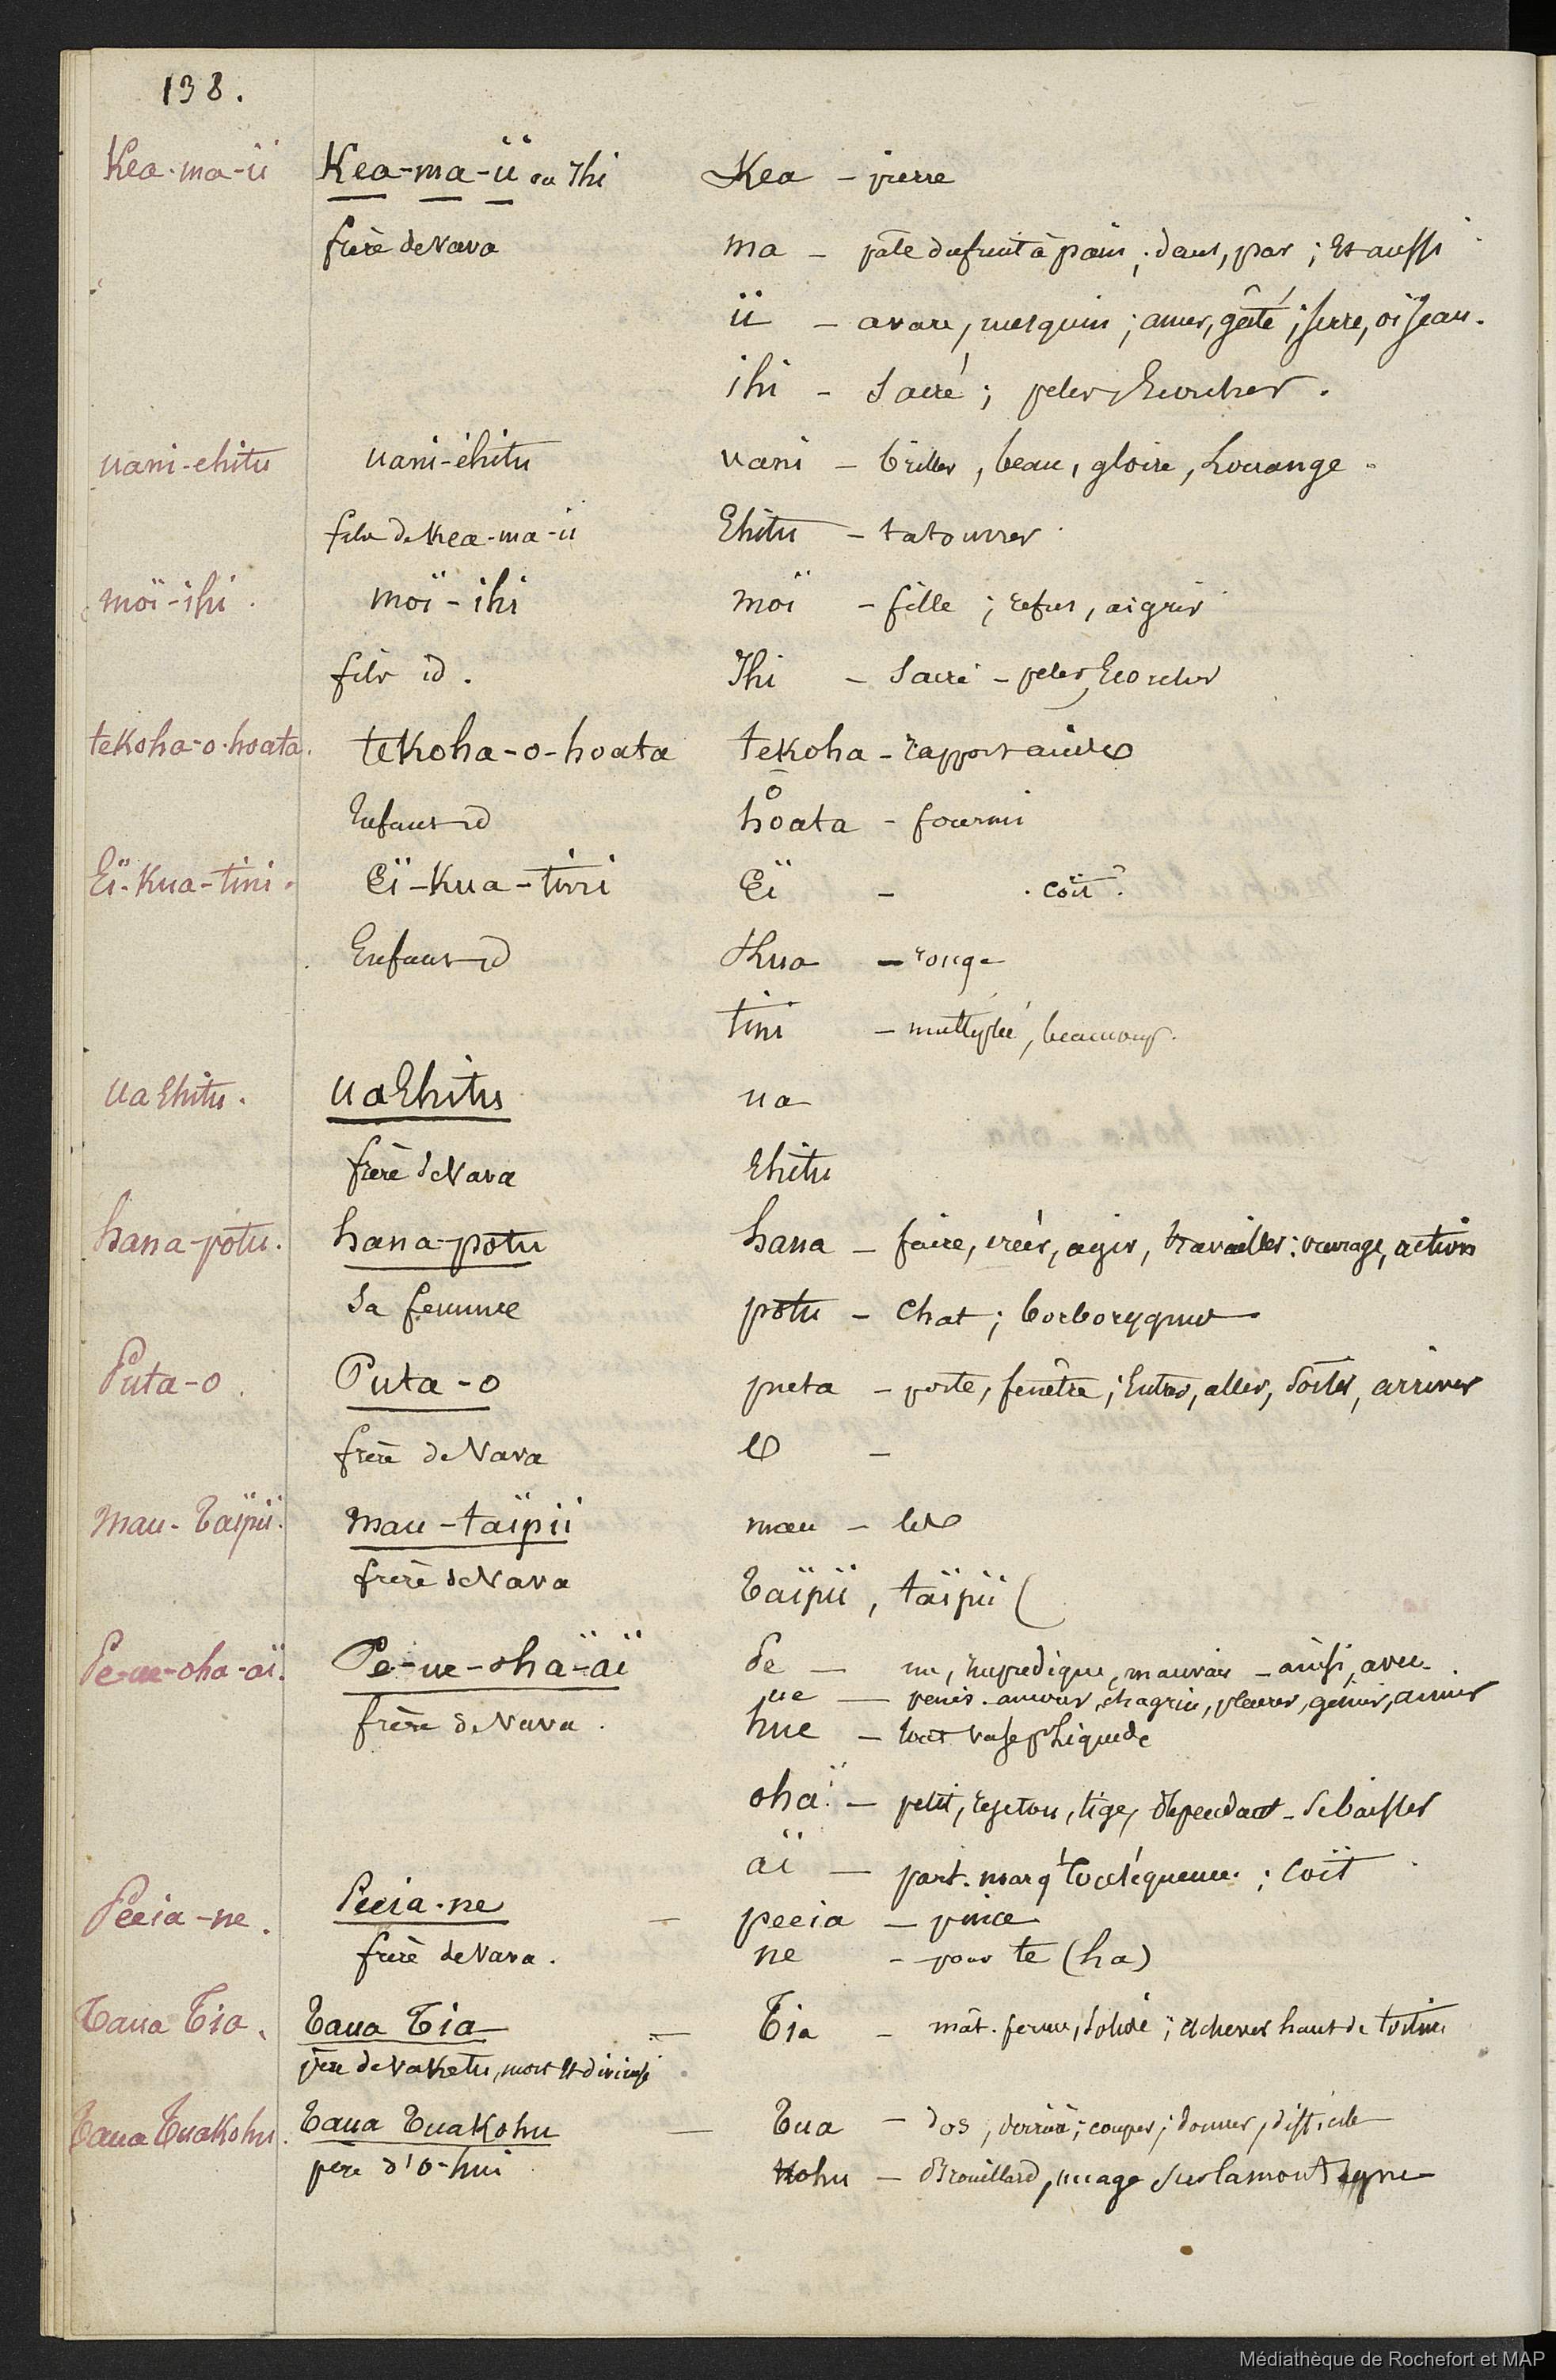 138.
Kea-ma-ü Kea-ma-ü ou Ihi Kea - pierre
frère de Nava ma - pâte du fruit à pain ; dans, par ; Et aussi
ü - avare, mesquin ; amer, gâté ; serre, oiseau.
ihi - Sacré ; peler, Ecorcher.
uani-ehitu uani-ehitu vani - briller, beau, gloire, Louange.
fils de Kea-ma-ü Ehitu - tatouer
moï-ihi. moï-ihi moï - fille ; refus, aigrir
fils id. Ihi - Sacré - peler, Ecorcher
tekoha-o-hoata. tekoha-o-hoata tekoha - rapport
Enfant id hoata - fourni
Eï-Kua-tini. Eï-Kua-tini Eï - coït ?
Enfant id Kua - rouge
tini - multiplié, beaucoup.
Ua Ehitu. Ua Ehitu ua
frère de Nava Ehitu
hana-potu. hana-potu hana - faire, créer, agir, travailler ; ouvrage, action
Sa femme potu - Chat ; borborygme
Puta-o. Puta-o puta - porte, fenêtre ; Entrer, aller, sortir, arriver
frère de Nava O -
Mau-Taïpii. Mau-taïpii mau - les
frère de Nava Taïpii, taïpii (
Pe-ue-oha-aï. Pe-ue-oha-aï Pe - nu, impudique, mauvais - ainsi, avec.
ue - penis. amour, chagrin, pleurer, gémir, aimer
frère de Nava. hue - tout vase pr liquide
oha - petit, rejeton, tige, dépendant - Se baisser
aï - part. marqt Conséquence ; Coït
Peeia-ne. Peeia-ne - peeia - pince
frère de Nava. ne - pour te (ha)
Taua Tia. Taua Tia - Tia - mât. ferme, Solide ; achever haut de
père de Vaketu, mort Et divinisé
Taua Tuakohu. Taua Tuakohu - Tua - dos, derrière ; couper ; donner, difficile
père d'O-hui Kohu - Brouillard, nuage Sur la montagne
Médiathèque de Rochefort et MAP